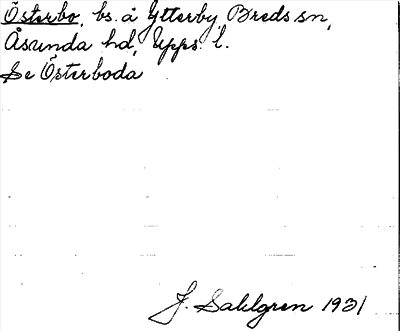 Österbo, bs. å Ytterby, Breds sn,
Åsunda hd, Upps. l.
Se Österboda
J. Sahlgren 1931